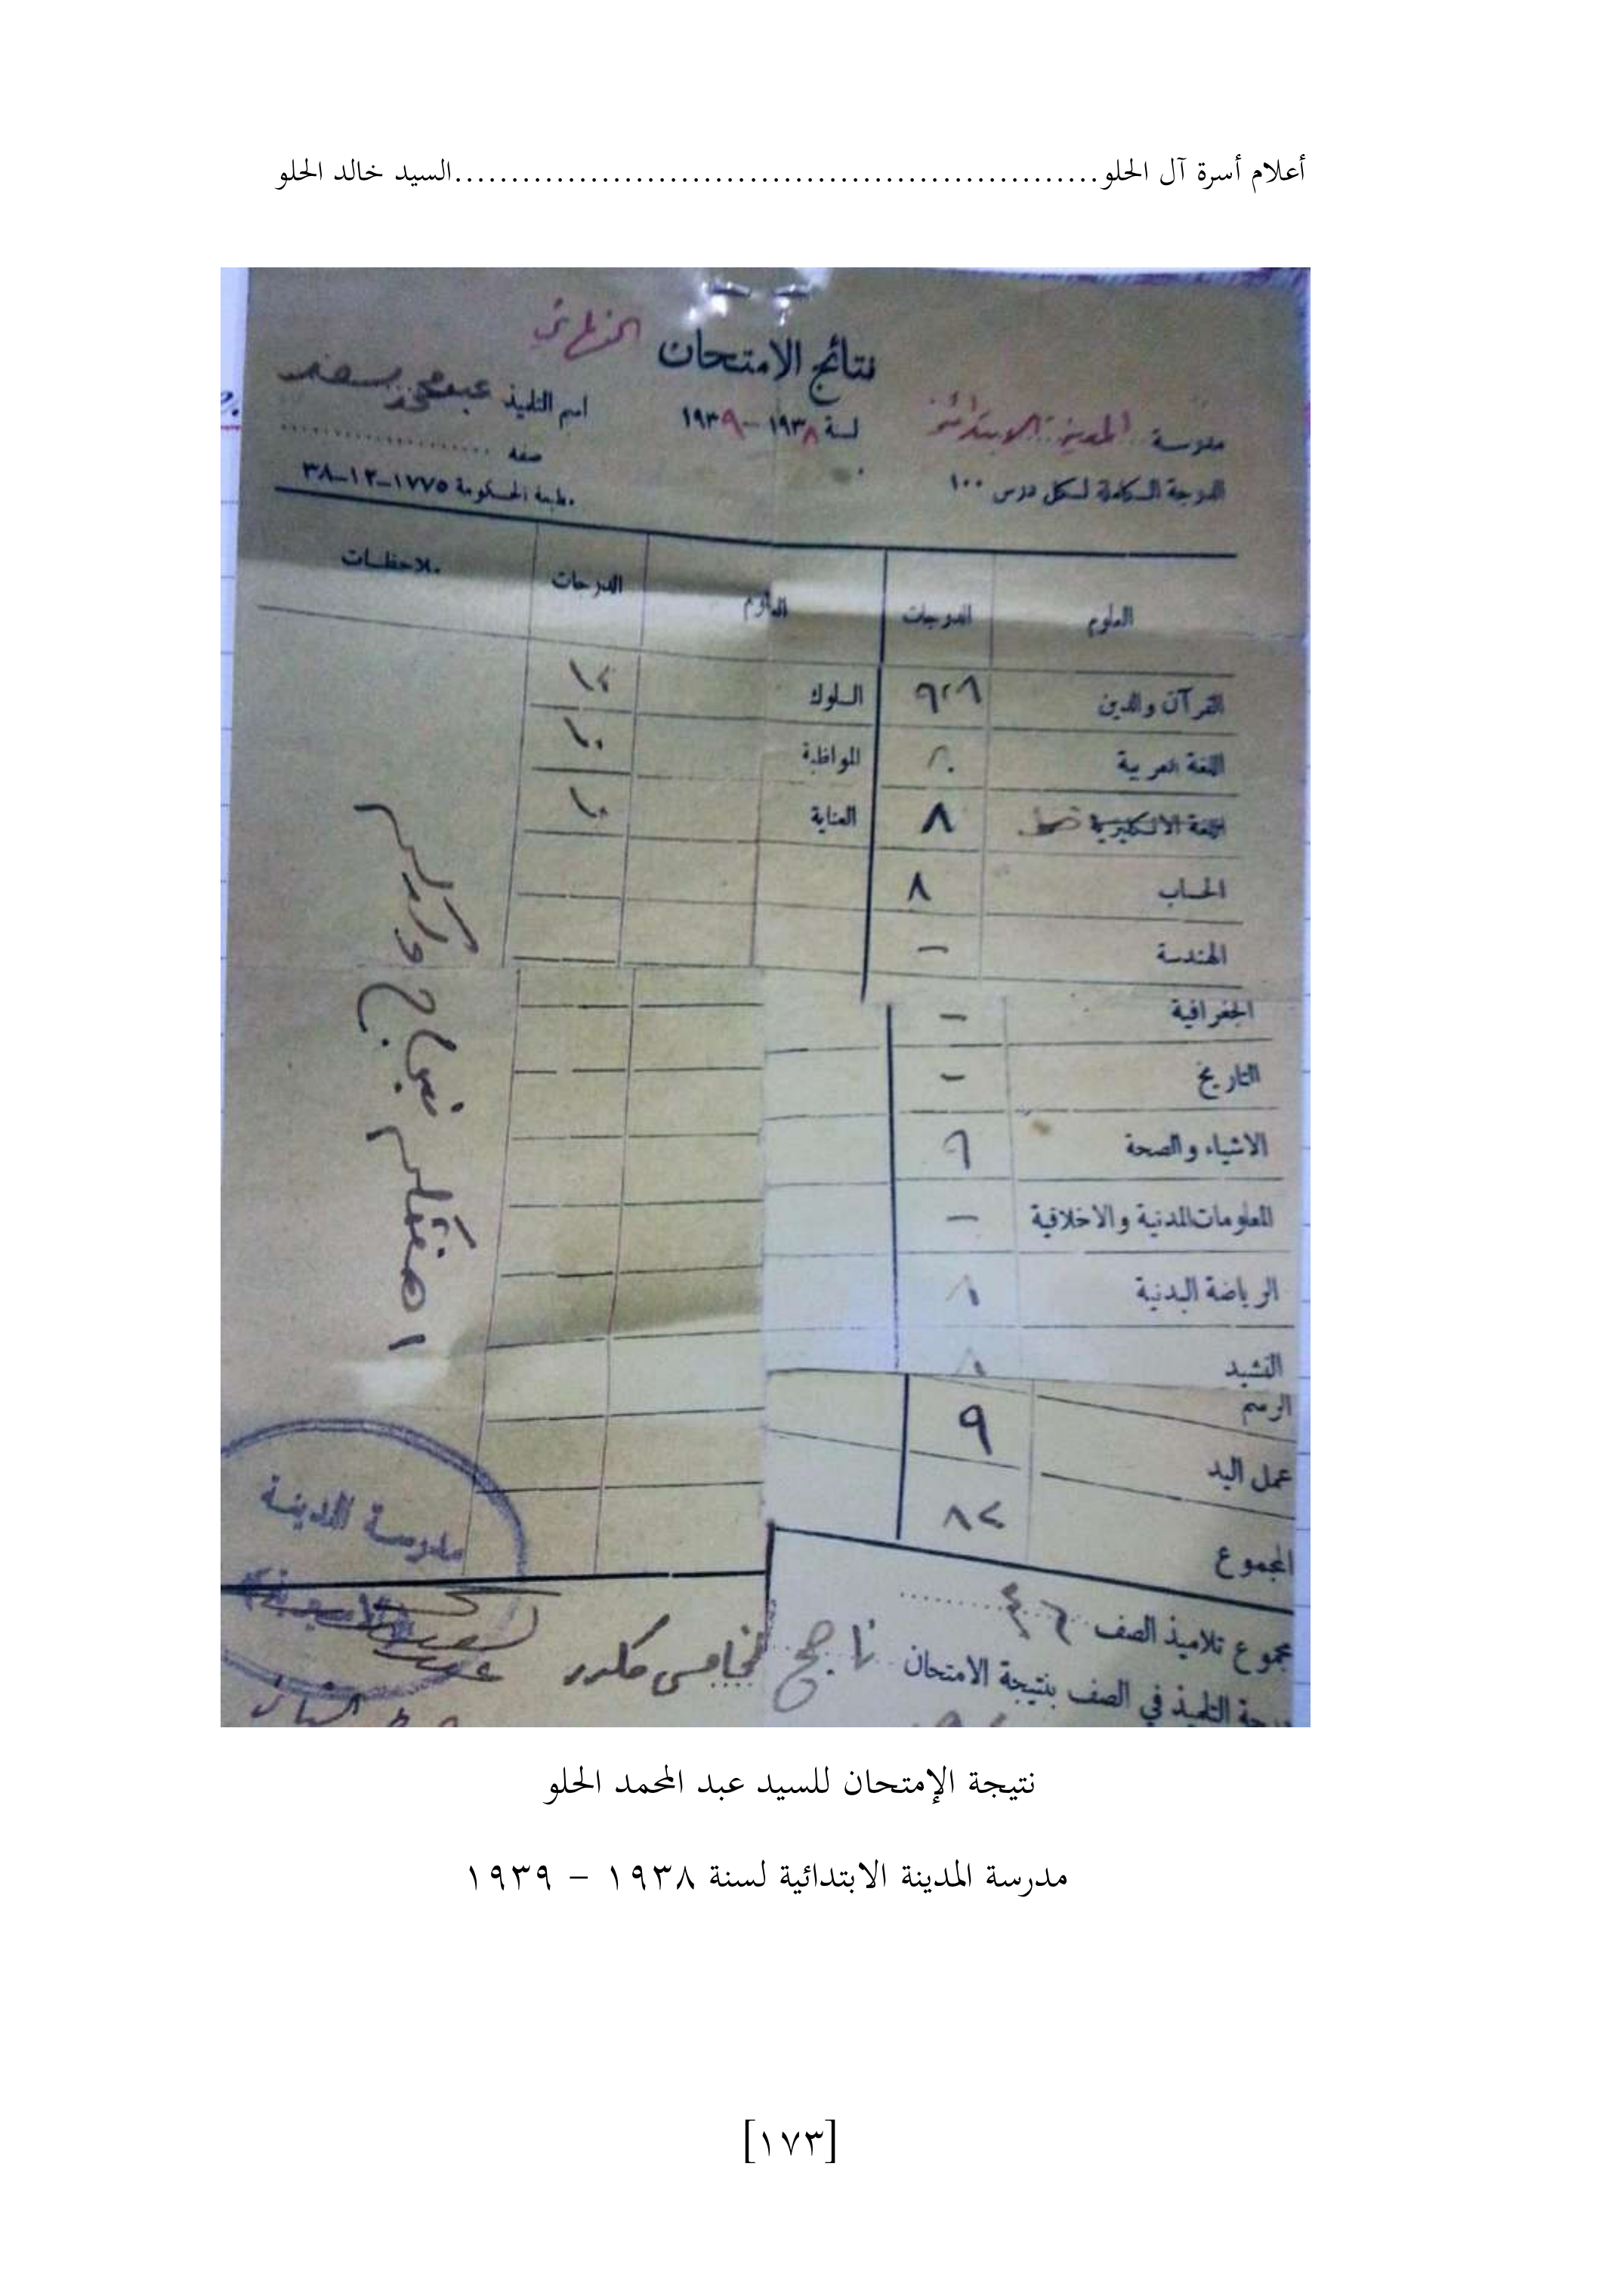 أعلام أسرة آل الحلو..........................................................السيد خالد الحلو
نتائج الامتحان النهائي
مدرسة المدينة الابتدائية
لسنة ١٩٣٨-١٩٣٩
اسم التلميذ عبد محمد
صفه ..................
الدرجة الكاملة لكل درس ١٠٠
مطبعة الحكومة ١٧٧٥-١٢-٣٨
العلوم الدرجات العلوم الدرجات ملاحظات
القرآن والدين السلوك
اللغة العربية المواظبة ١٠
اللغة الانكليزية خط ٨ العناية ١٠
الحساب ٨
الهندسة –
الجغرافية –
التاريخ –
الاشياء والصحة ٩
المعلومات المدنية والاخلاقية –
الرياضة البدنية ٨
النشيد ٨
الرسم ٩
عمل اليد
المجموع ٨٢
اهنئكم نجاح ولدكم
مدرسة المدينة
مجموع تلاميذ الصف ٤٦
درجة التلميذ في الصف بنتيجة الامتحان ناجح للخامس مكرر
نتيجة الإمتحان للسيد عبد المحمد الحلو
مدرسة المدينة الابتدائية لسنة ١٩٣٨ – ١٩٣٩
[١٧٣]